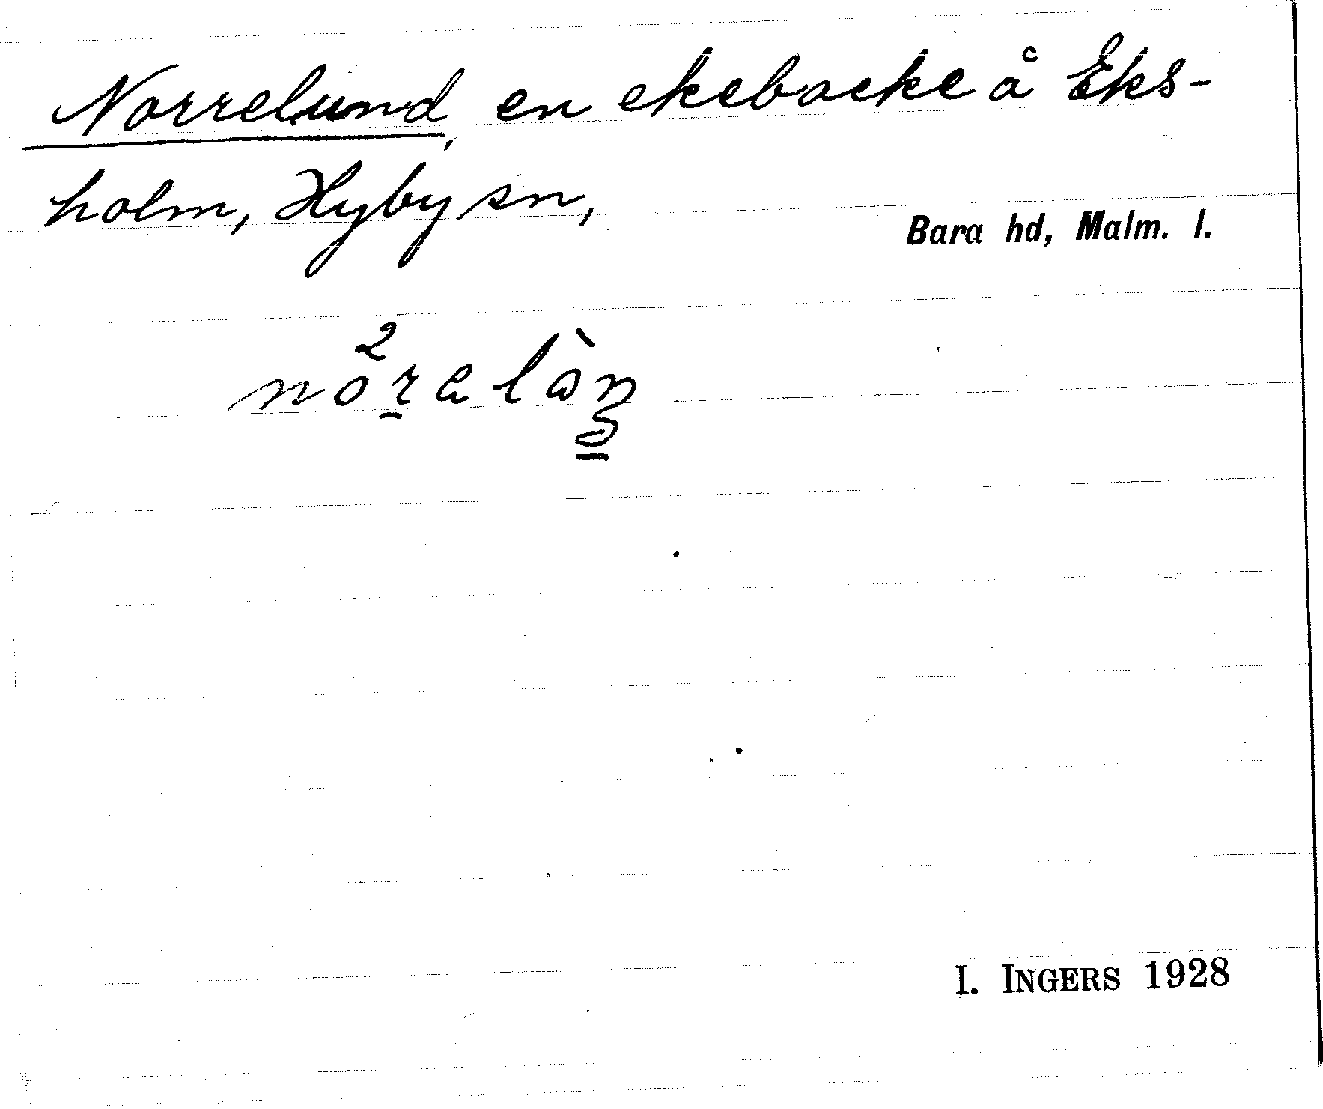 Norrelund, en ekebacke å Eks-
holm, Hyby sn,
Bara hd, Malm. l.
I. INGERS 1928